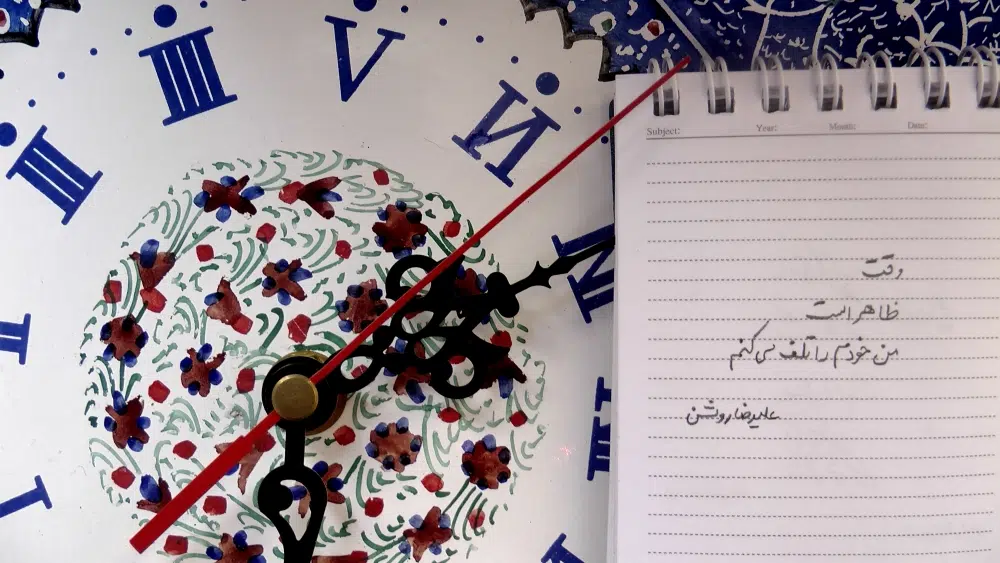 IIII
V
VI
III
VII
II
I
Subject: Year: Month: Date:
وقت
ظاهر است
من خودم را تلف می‌کنم
علیرضا روشن